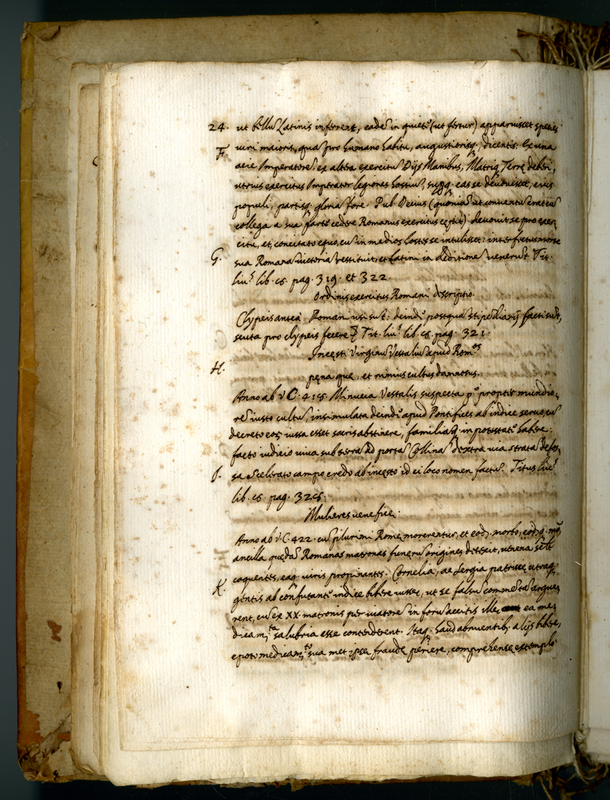 24. ut bellũ Latinis inferent, eadẽ in quietẽ (ut fertur) apparuisset species
F. viri maioris, quã pro humano habitu, augustiorisq; dicentis. Ex una
acie Imperatorẽ ex altera exercitũ Dijs Manibus, Matriq; Terre deberi,
utrius exercitus Imperator legiones hostiũ, superq; eas se devovisset, eius
populi, partisq; gloria fore. Pub. Decius (quoniã ut convenerat cum
collega a sua parte cedere Romanus exercitus cepit) devovit se pro exer
citu, et concitato equo, cũ in medios hostes se intulisset: interfectus morte
G. sua Romanis victoriã restituit, et Latini in deditionẽ venerũt. Tit.
liuˢ lib. 8. pag. 319. et 322.
Ordinis exercitus Romani descriptio.
Clypeis antea Romani usi sũt: deindẽ postquã stipendiarij facti sũt,
scuta pro clypeis fecere. Tit. liuˢ lib. 8. pag. 321.
Incesti Virginũ Vestaliũ apud Romᵒˢ
H. pena que, et nimius cultus damnatus.
Anno ab V.C. 415. Minucia Vestalis suspecta pº propter mundio
rẽ iusto cultũ, insimulata deindẽ apud Pontifices ab indice servo, cũ
decreto eoꝝ iussa esset sacris abstinere, familiãq; in potestatẽ habere:
facto iudicio viva sub terrã ad portã Collinã dextra via strata defos
I. sa Scelerato campo credo ab incesto id ei loco nomen factũ. Titus liuˢ
lib. 8. pag. 325.
Mulieres venefice.
Anno ab V.C. 422. cũ plurimi Rome morerentur, et eodẽ morbo,
ancilla quedã Romanas matronas funerũ origines detexit, venena
coquentes, eaq; viris propinantes. Cornelia, ac Sergia patricie utraq;
K. gentis ab confutante indice bibere iusse, ut se falsũ commenta argue
rent, cũ ex XX matronis per viatorẽ in forũ accitis ille ea me
dicamᵗᵃ salubria esse contenderent. Itaq; haud abnuentibꝰ alijs bibere,
epoto medicamᵗᵒ sua met ipse fraude periere, comprehense extemplo